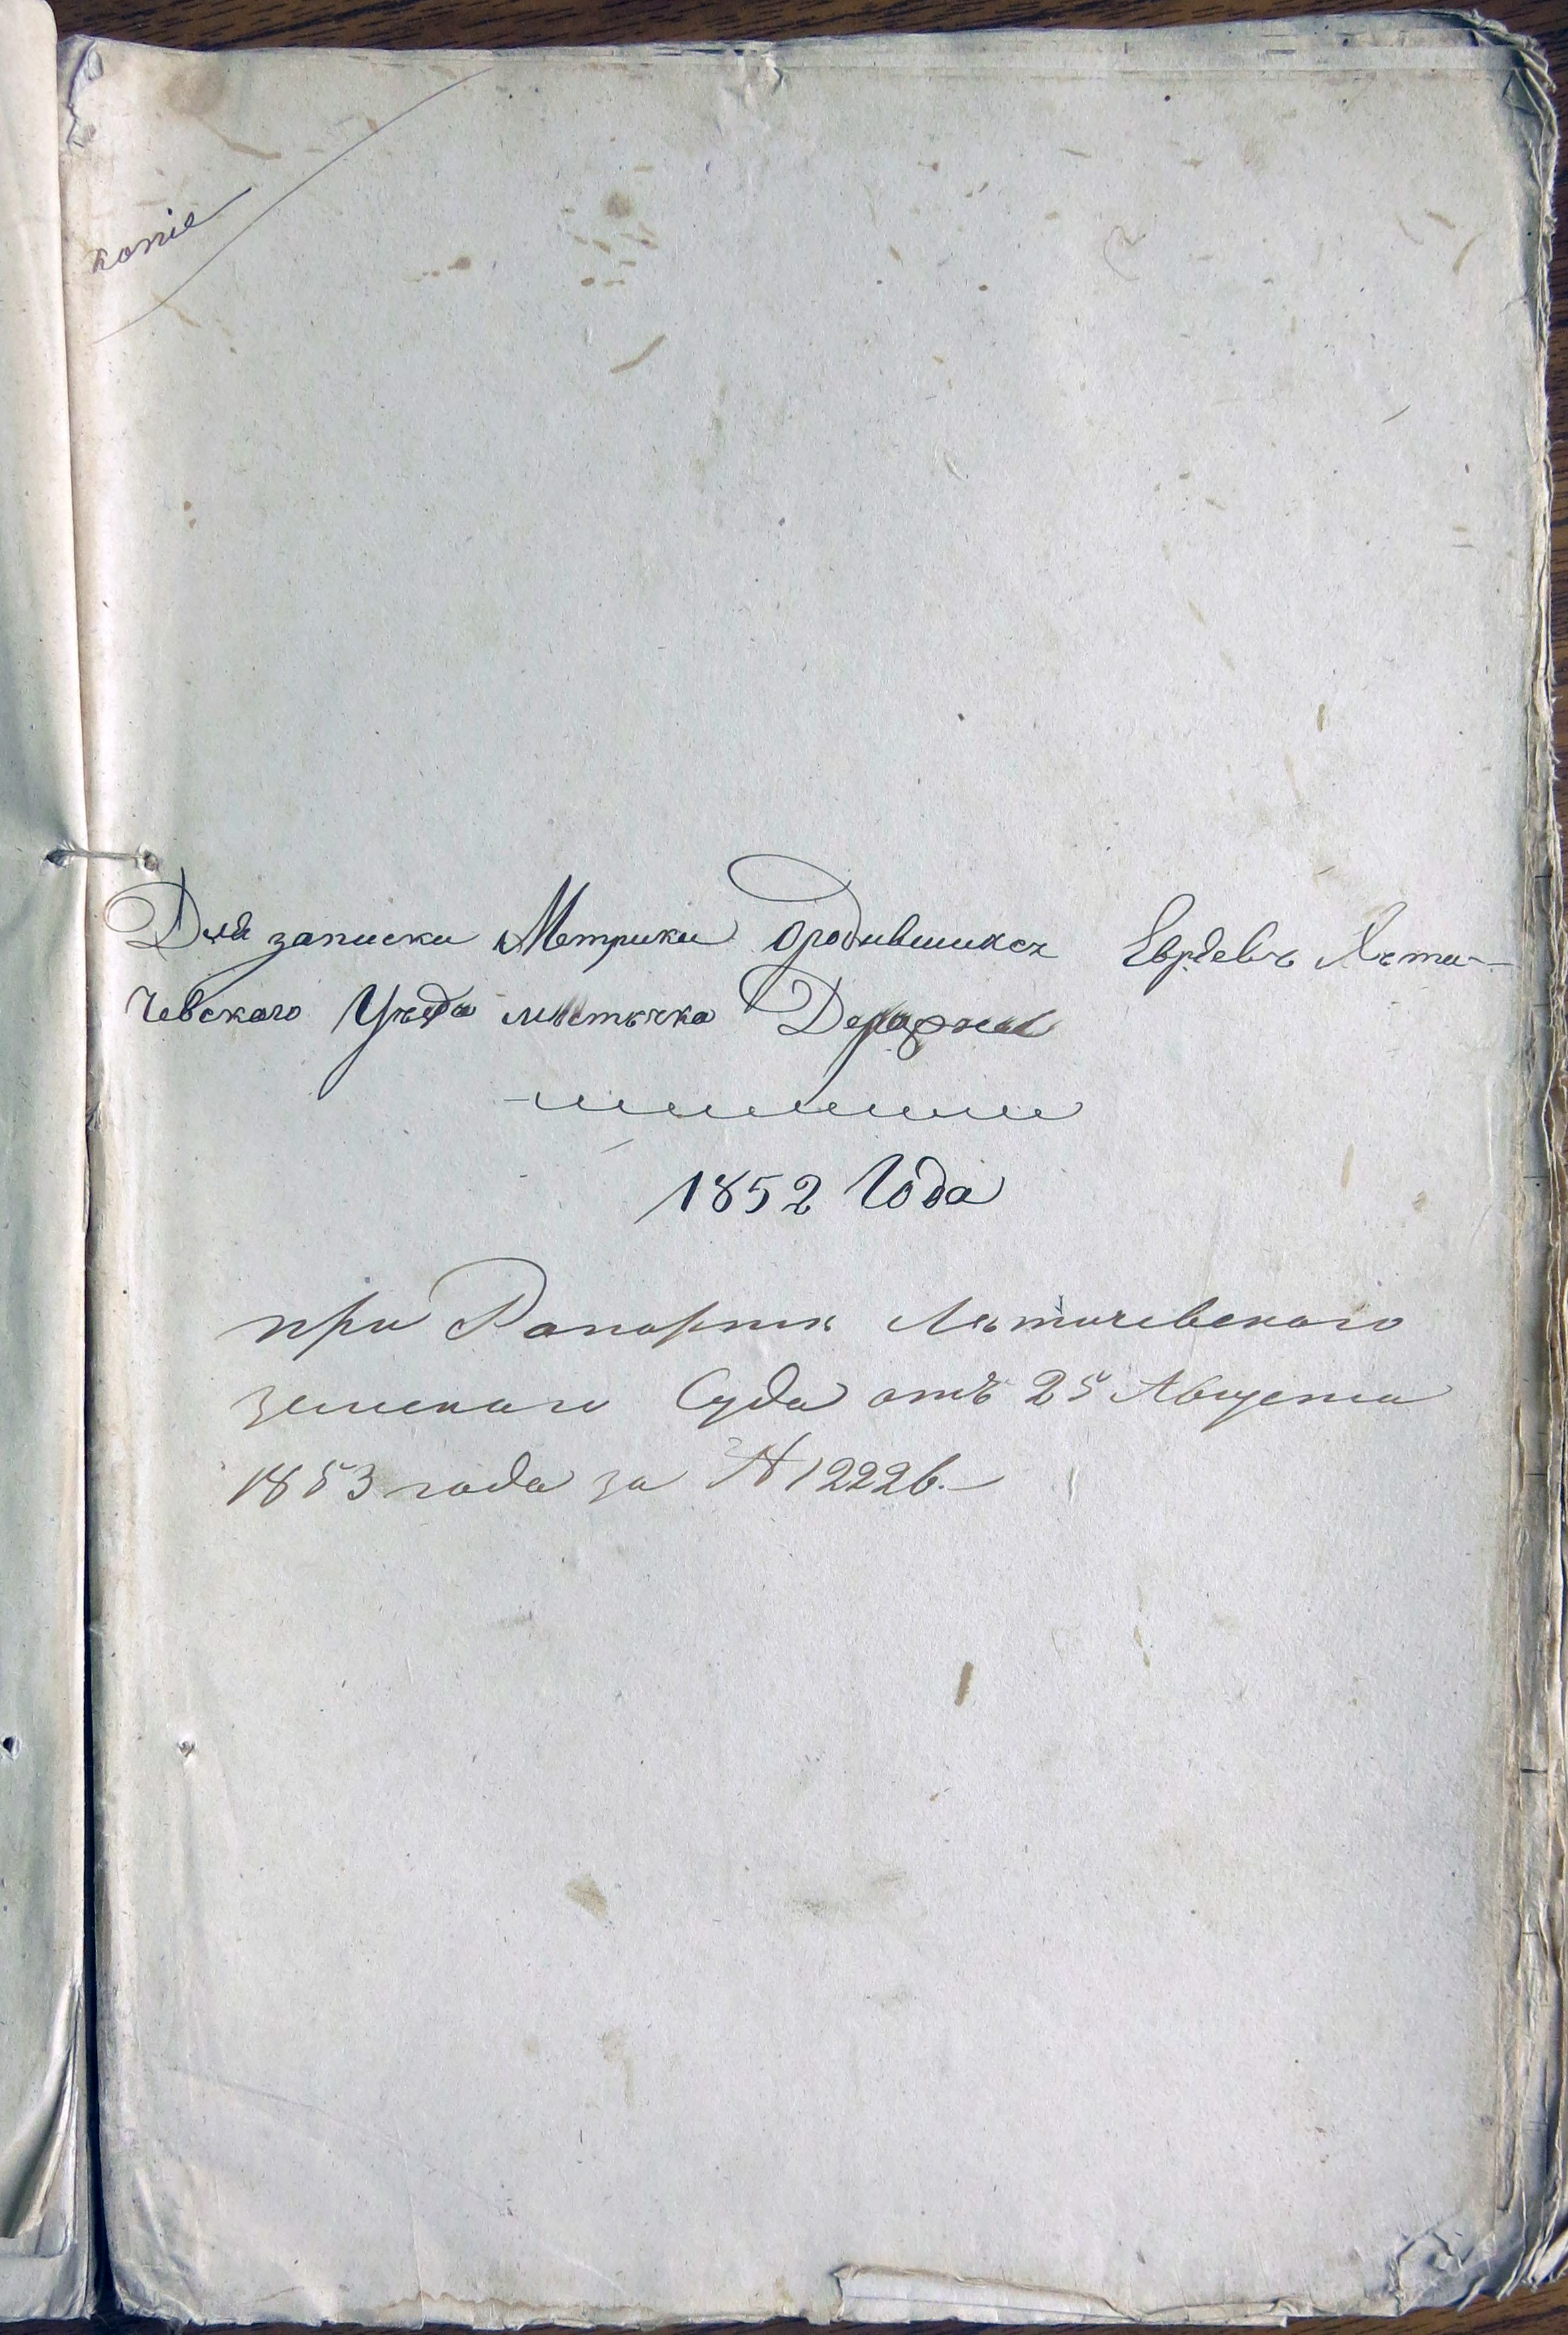 копіе
Для записки Метрики ородившихся Евреевъ Лѣти-
чевского Уѣзда мѣстѣчка Деражни
1852 Года
при Рапортѣ Лѣтичевского
земского Суда отъ 25 Августа
1853 года за № 12226.